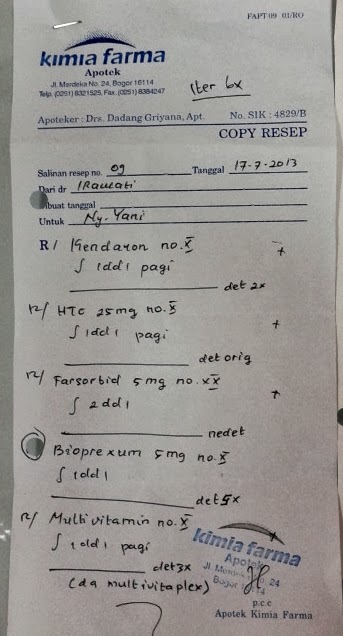 FAPT 09 01/RO
kimia farma
Apotek
Jl. Merdeka No. 24, Bogor 16114
Telp. (0251) 8321525, Fax. (0251) 8384247
Iter 6x
Apoteker : Drs. Dadang Griyana, Apt. No. SIK : 4829/B
COPY RESEP
Salinan resep no. 09 Tanggal 17-7-2013
Dari dr Irawati
ibuat tanggal
Untuk Ny. Yani
R/ Kendaron no. X +
∫ 1dd1 pagi
det 2x
R/ HTC 25 mg no. X +
∫ 1dd1 pagi
det orig
R/ Farsorbid 5 mg no. XX +
∫ 2dd1
nedet
Bioprexum 5mg no. X
∫ 1dd1
det 5x
R/ Multivitamin no. X
∫ 1dd1 pagi
det 3x
(da multivitaplex)
kimia farma
Apotek
Jl. Merdeka No. 24
Bogor
p.c.c
Apotek Kimia Farma